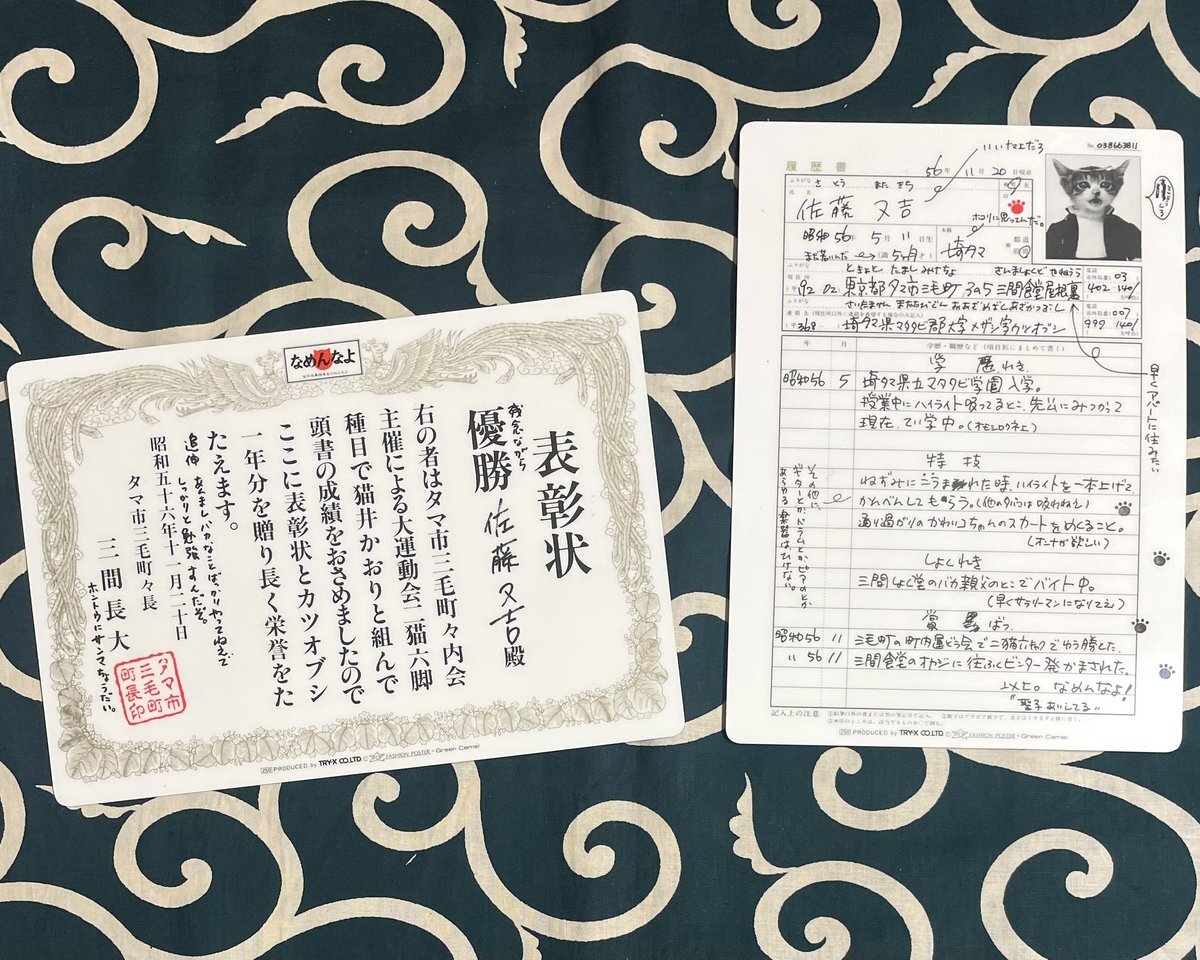 なめんなよ
表彰状
残念ながら
優勝 佐藤又吉殿
右の者はタマ市三毛町々内会
主催による大運動会二猫六脚
種目で猫井かおりと組んで
頭書の成績をおさめましたので
ここに表彰状とカツオブシ
一年分を贈り長く栄誉をた
たえます。
追伸 あんましバカなことばっかりやってねえで
しっかりと勉強すんだぞ。
昭和五十六年十一月二十日
タマ市三毛町々長
三間長大
ホントウにサンマちょうだい。
タマ市
三毛町
町長印
250 PRODUCED by TRY-X CO.LTD. © FASHION POSTER・Green Camel
No. 038663811
いいナマエだろ
履歴書
56年11月20日現在
ふりがな さとう またきち
氏名
佐藤 又吉
ホコリに思ってんだ。
昭和56年5月11日生
まだ若いんだ (満5ヶ月才)
本籍 埼タマ 都道府県
ふりがな とうきょうと たましみけちょう さんましょくどうやねうら
現住所
(〒192 02) 東京都タマ市三毛町3の5三間食堂屋根裏
電話
市外局番(03)
402 1401
ふりがな
連絡先 (現住所以外に連絡を希望する場合のみ記入)
(〒368) 埼タマ県マタタビ郡大字メザシ字カツオブシ
電話
市外局番(007)
999 1401
早くアパートに住みたい
年 月 学歴・職歴など (項目別にまとめて書く)
学歴
昭和56 5 埼タマ県立マタタビ学園入学。
授業中にハイライト吸ってるとこ、先公にみつかって
現在、てい学中。(オモシロクネエ)
特技
ねずみにこうまれた時、ハイライトを一本上げて
かんべんしてもらう。(他のタバコは吸わねえ)
通り過がりのかわいコちゃんのスカートをめくること。
(オンナが欲しい)
その他に、
ギターとかドラムとかピアノとか
あらゆる楽器はひけない。
しょくれき
三間しょく堂のバカ親父のとこでバイト中。
(早くサラリーマンになりてえ)
賞罰 ばつ
昭和56 11 三毛町の町内運どう会で二猫六キャクでゆう勝した。
〃 56 11 三間食堂のオヤジに往ふくビンタ一発かまされた。
以上。なめんなよ!
"聖子あいしてる"
記入上の注意 ①鉛筆以外の青または黒の筆記具で記入。 ②数字はアラビア数字で、文字はくずさず正確に書く。
250 PRODUCED by TRY-X CO.LTD. © FASHION POSTER・Green Camel